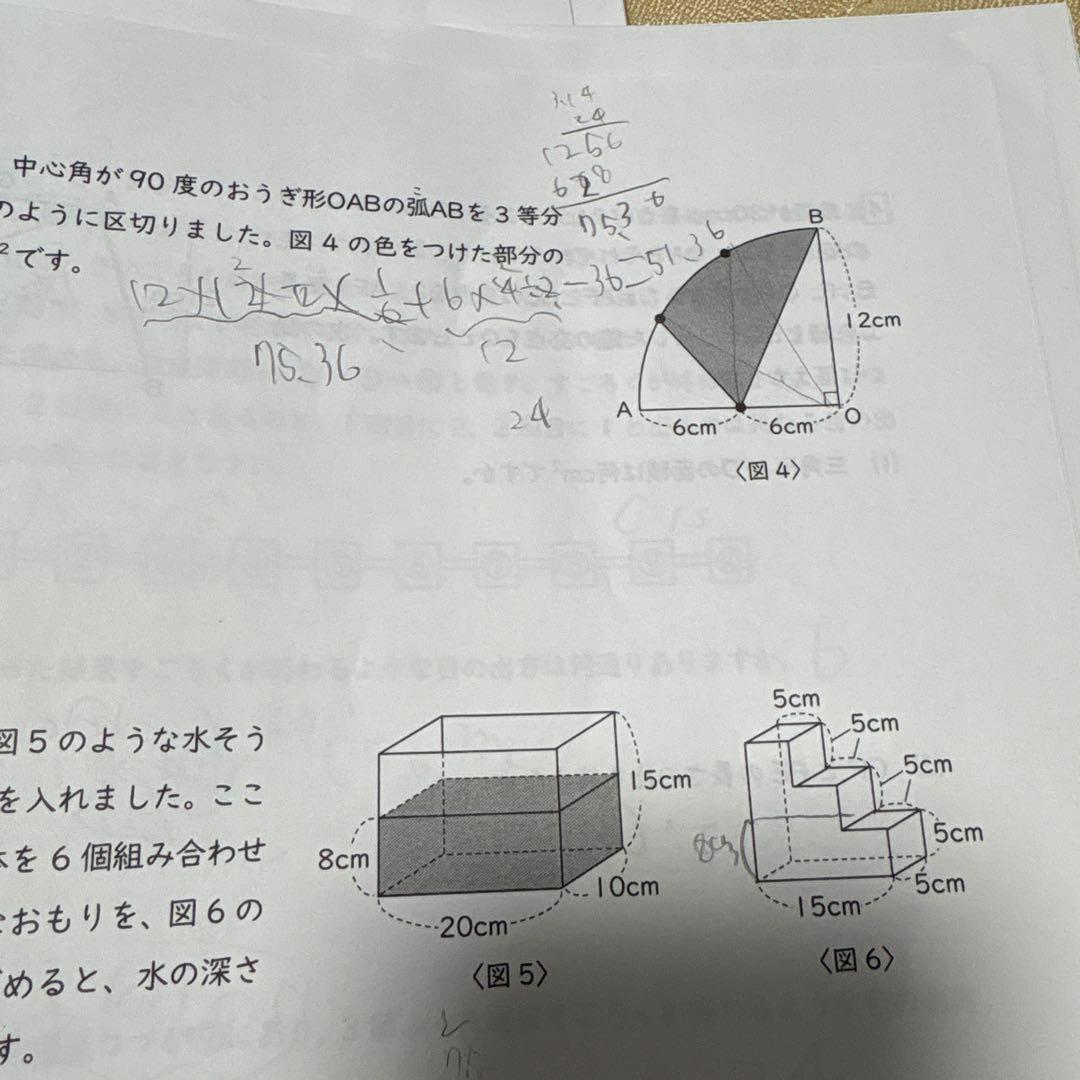 中心角が90度のおうぎ形OABの弧ABを3等分
こ
のように区切りました。図4の色をつけた部分の
2です。
3.14
24
1256
628
75.36
12×12×π×1/6+6×4÷2-36=51.36
75.36
12
24
B
12cm
A
O
6cm
6cm
〈図4〉
図5のような水そう
を入れました。ここ
体を6個組み合わせ
おもりを、図6の
めると、水の深さ
す。
15cm
8cm
10cm
20cm
〈図5〉
5cm
5cm
5cm
8cm
5cm
5cm
15cm
〈図6〉